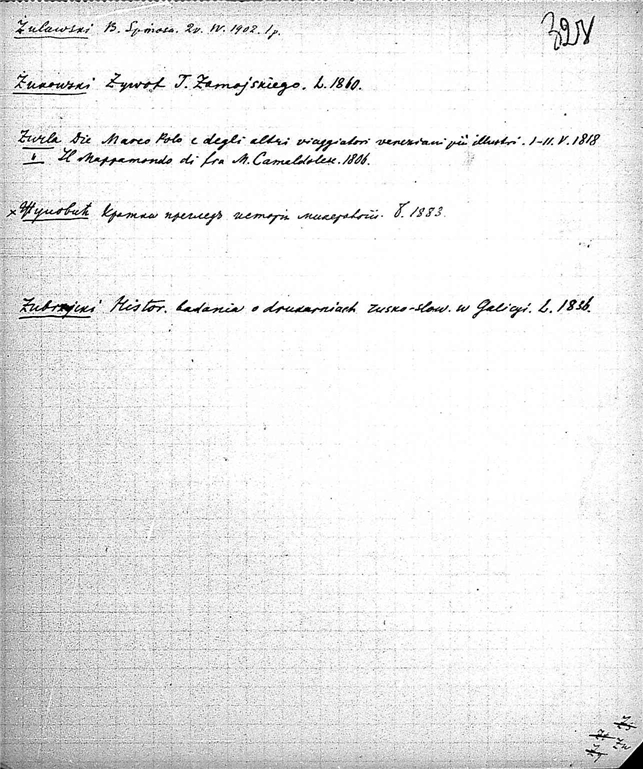 Żuławski B. Spinosa. 2v. W. 1902. 1 p.
Żukowski Żywot T. Zamojskiego. L. 1860.
Zurla Die Marco Polo e degli altri viaggiatori veneziani più illustri. I-II. V. 1818
" Il Mappamondo di fra M. Camaldolese. 1806.
× Жујовић Кратки преглед 1883.
Zubrzycki Histor. badania o drukarniach rusko-słow. w Galicyi. L. 1836.